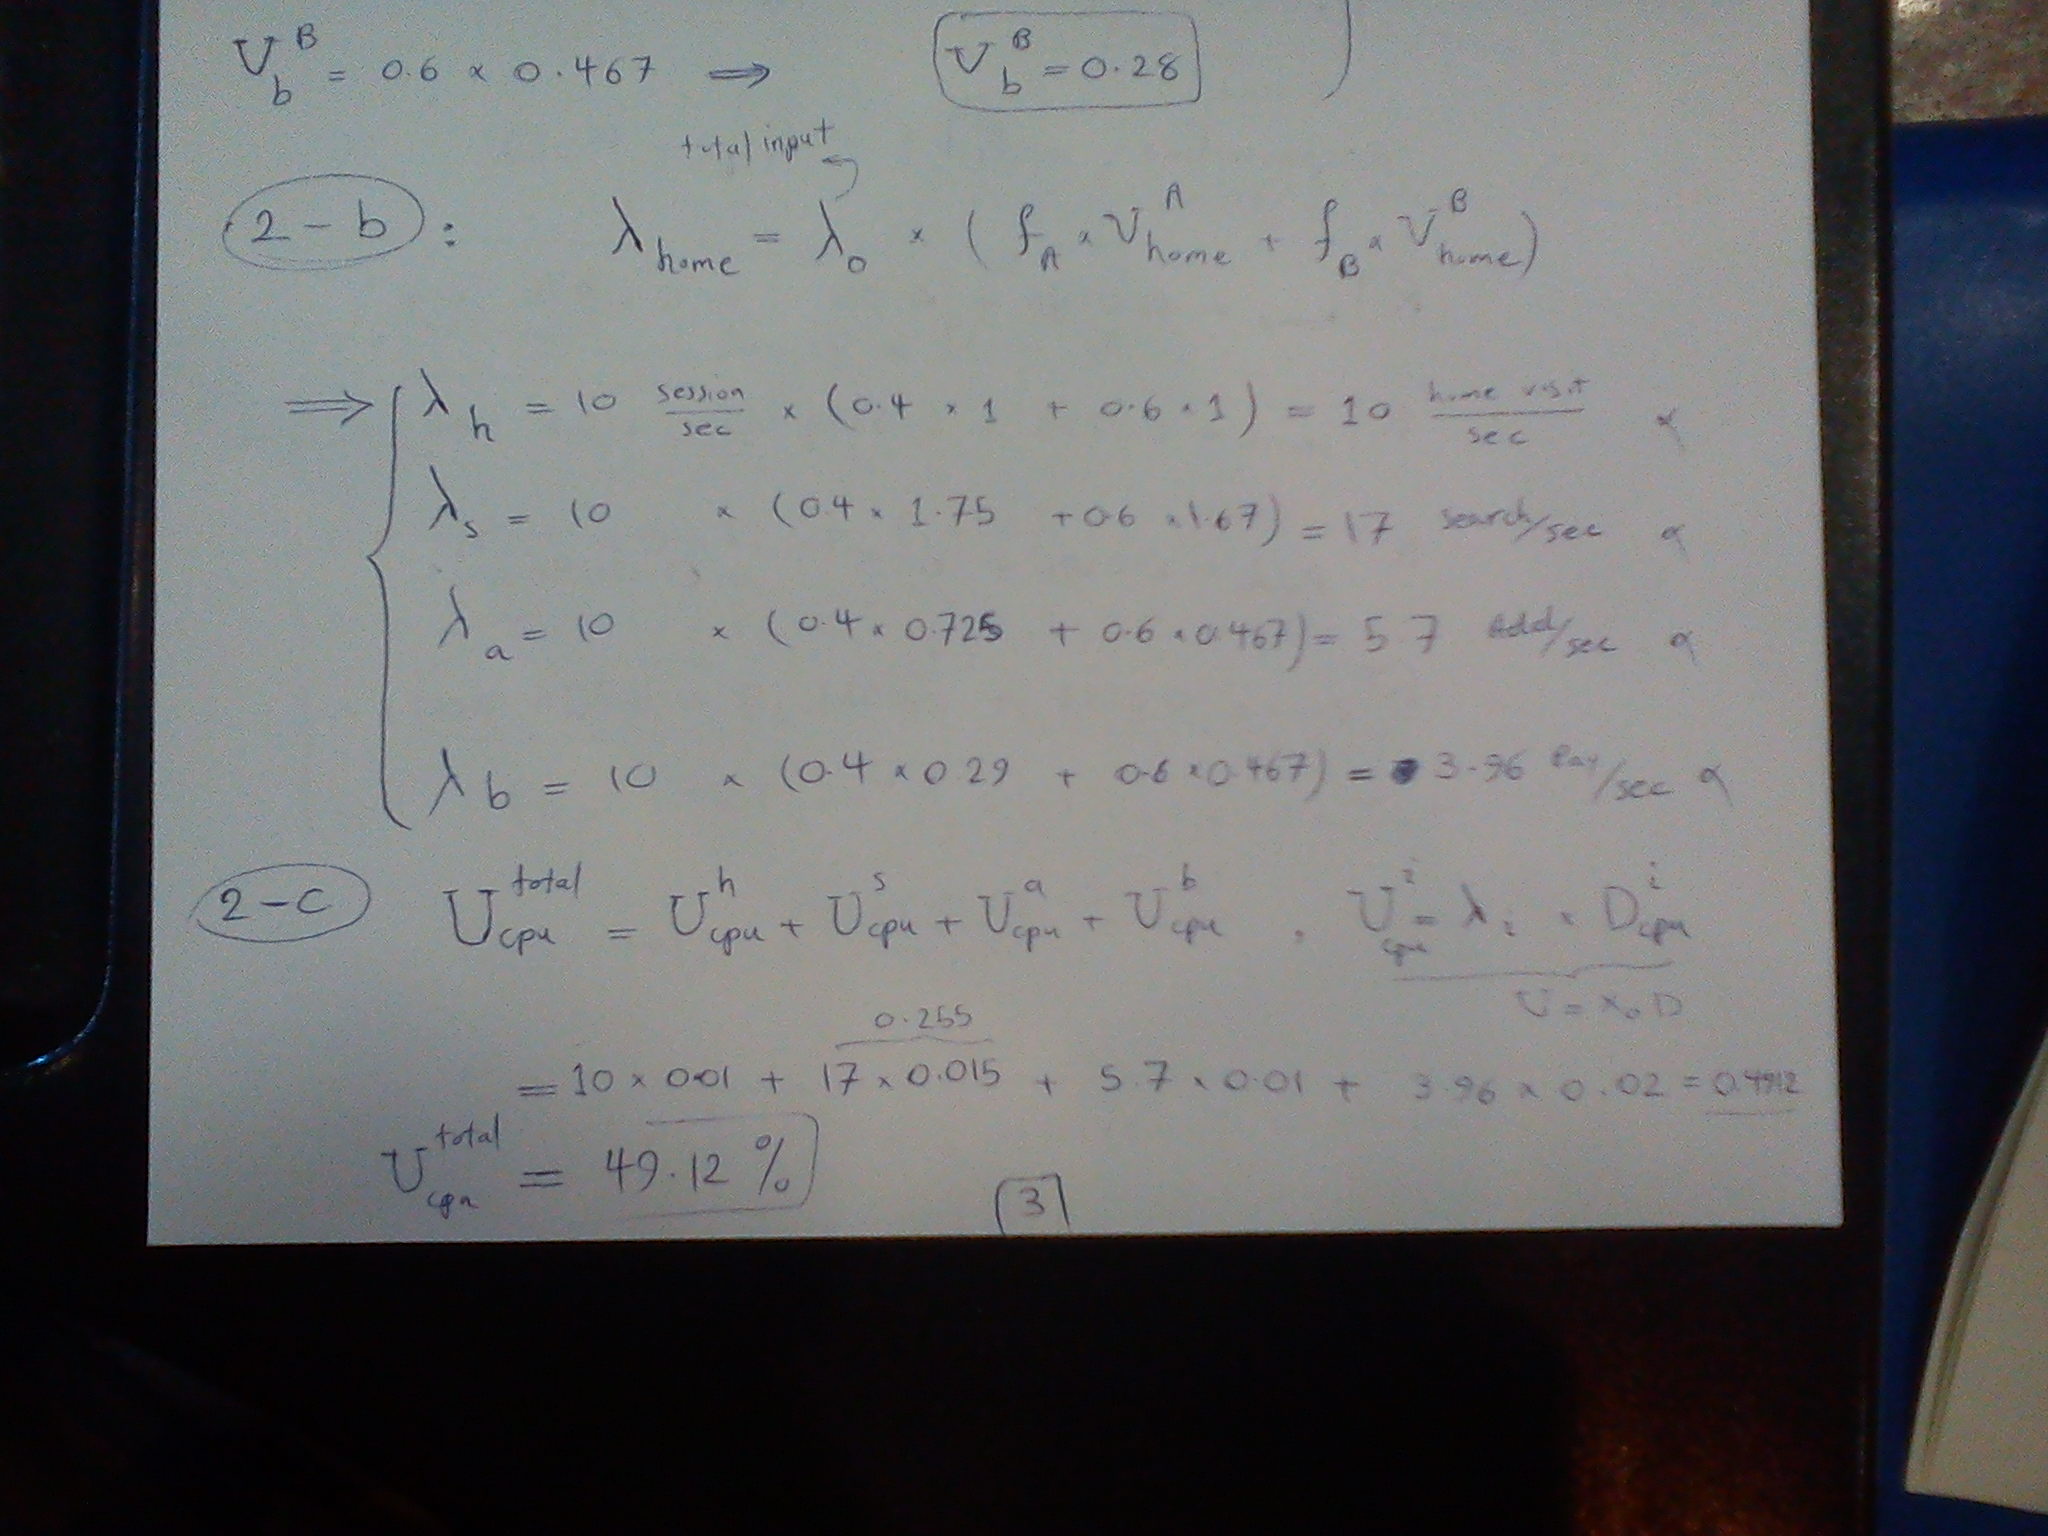 V_b^B = 0.6 × 0.467 ⇒ V_b^B = 0.28
total input
2 - b : λ_home = λ_0 × ( f_A × V_home^A + f_B × V_home^B )
⇒ λ_h = 10 session/sec × (0.4 × 1 + 0.6 × 1) = 10 home visit/sec α
λ_s = 10 × (0.4 × 1.75 + 0.6 × 1.67) = 17 search/sec α
λ_a = 10 × (0.4 × 0.725 + 0.6 × 0.467) = 5.7 Add/sec α
λ_b = 10 × (0.4 × 0.29 + 0.6 × 0.467) = 3.96 Pay/sec α
2 - C U_cpu^total = U_cpu^h + U_cpu^s + U_cpu^a + U_cpu^b . U_cpu^i = λ_i × D_cpu^i
U = X_0 D
0.255
= 10 × 0.01 + 17 × 0.015 + 5.7 × 0.01 + 3.96 × 0.02 = 0.4912
U_cpu^total = 49.12 %
3